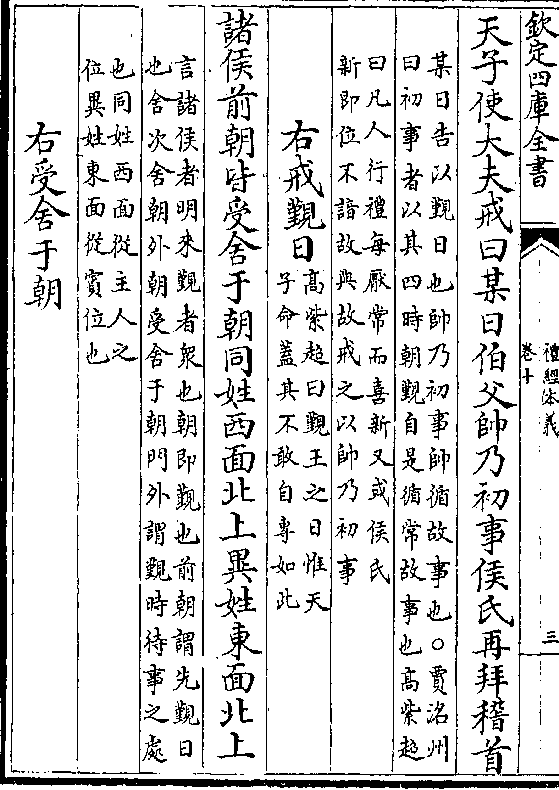 欽定四庫全書
禮經本義
卷十
三
天子使大夫戒曰某日伯父帥乃初事侯氏再拜稽首
某日告以覲日也帥乃初事帥循故事也○賈洺州
曰初事者以其四時朝覲自是循常故事也高紫超
曰凡人行禮每厭常而喜新又或侯氏
新即位不諳故典故戒之以帥乃初事
右戒覲日
高紫超曰覲王之日惟天
子命蓋其不敢自專如此
諸侯前朝皆受舍于朝同姓西面北上異姓東面北上
言諸侯者明來覲者衆也朝即覲也前朝謂先覲日
也舍次舍朝外朝受舍于朝門外謂覲時待事之處
也同姓西面從主人之
位異姓東面從賓位也
右受舍于朝